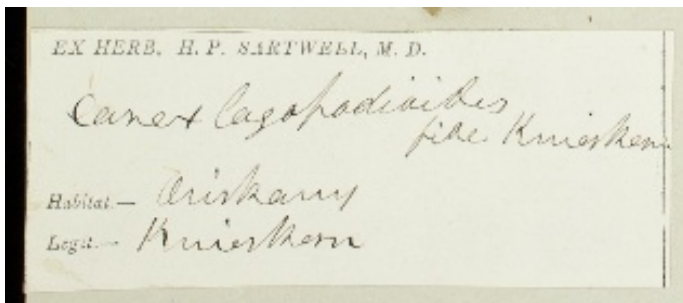 EX HERB. H. P. SARTWELL, M. D.
Carex lagopodioides
fide Knieskern
Habitat.— Oriskany
Legit— Knieskern